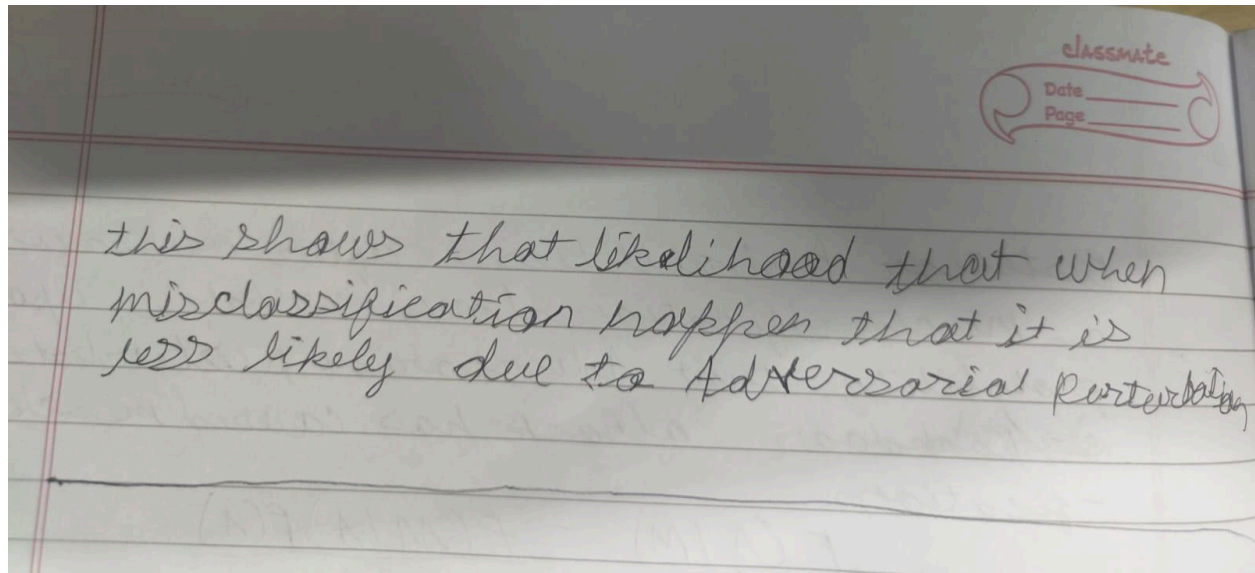 classmate
Date
Page
this shows that likelihood that when
misclassification happen that it is
less likely due to Adversarial Perturbation